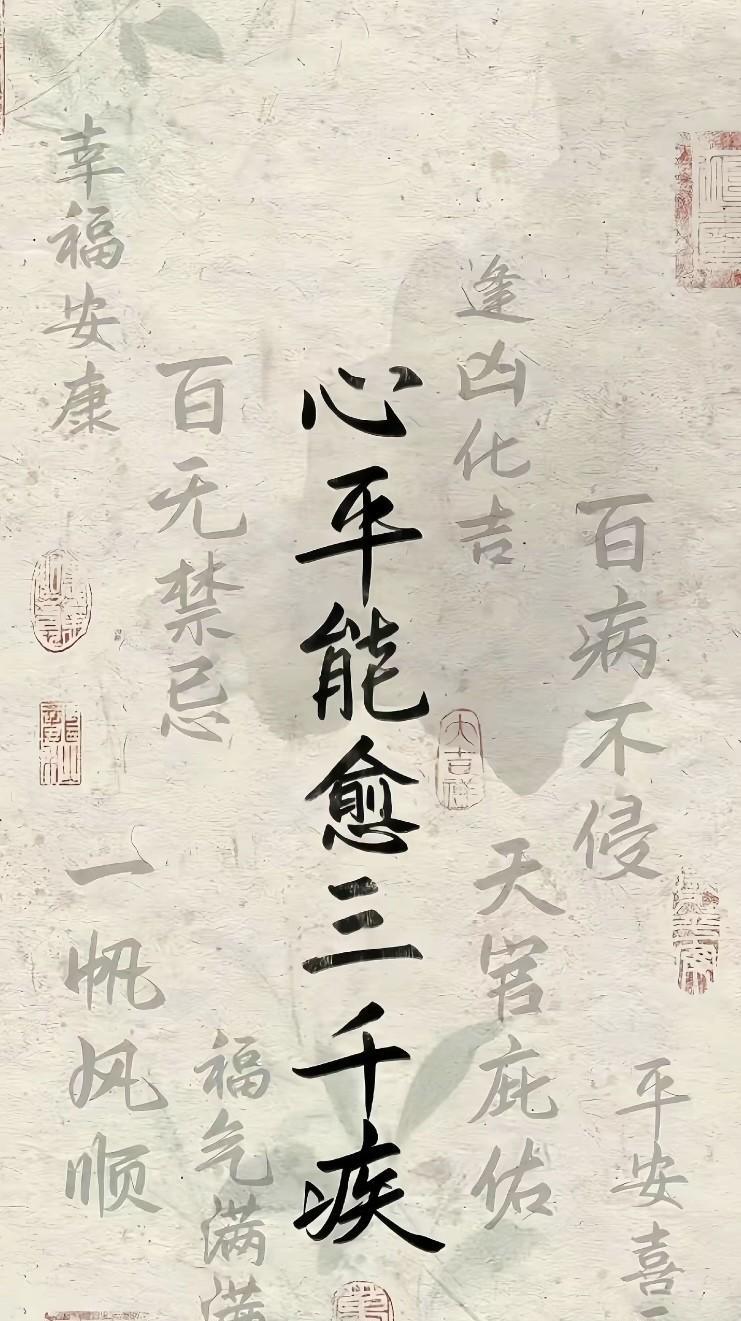 心平能愈三千疾
幸福安康
百无禁忌
逢凶化吉
百病不侵
一帆风顺
福气满满
天官庇佑
平安喜
大吉祥